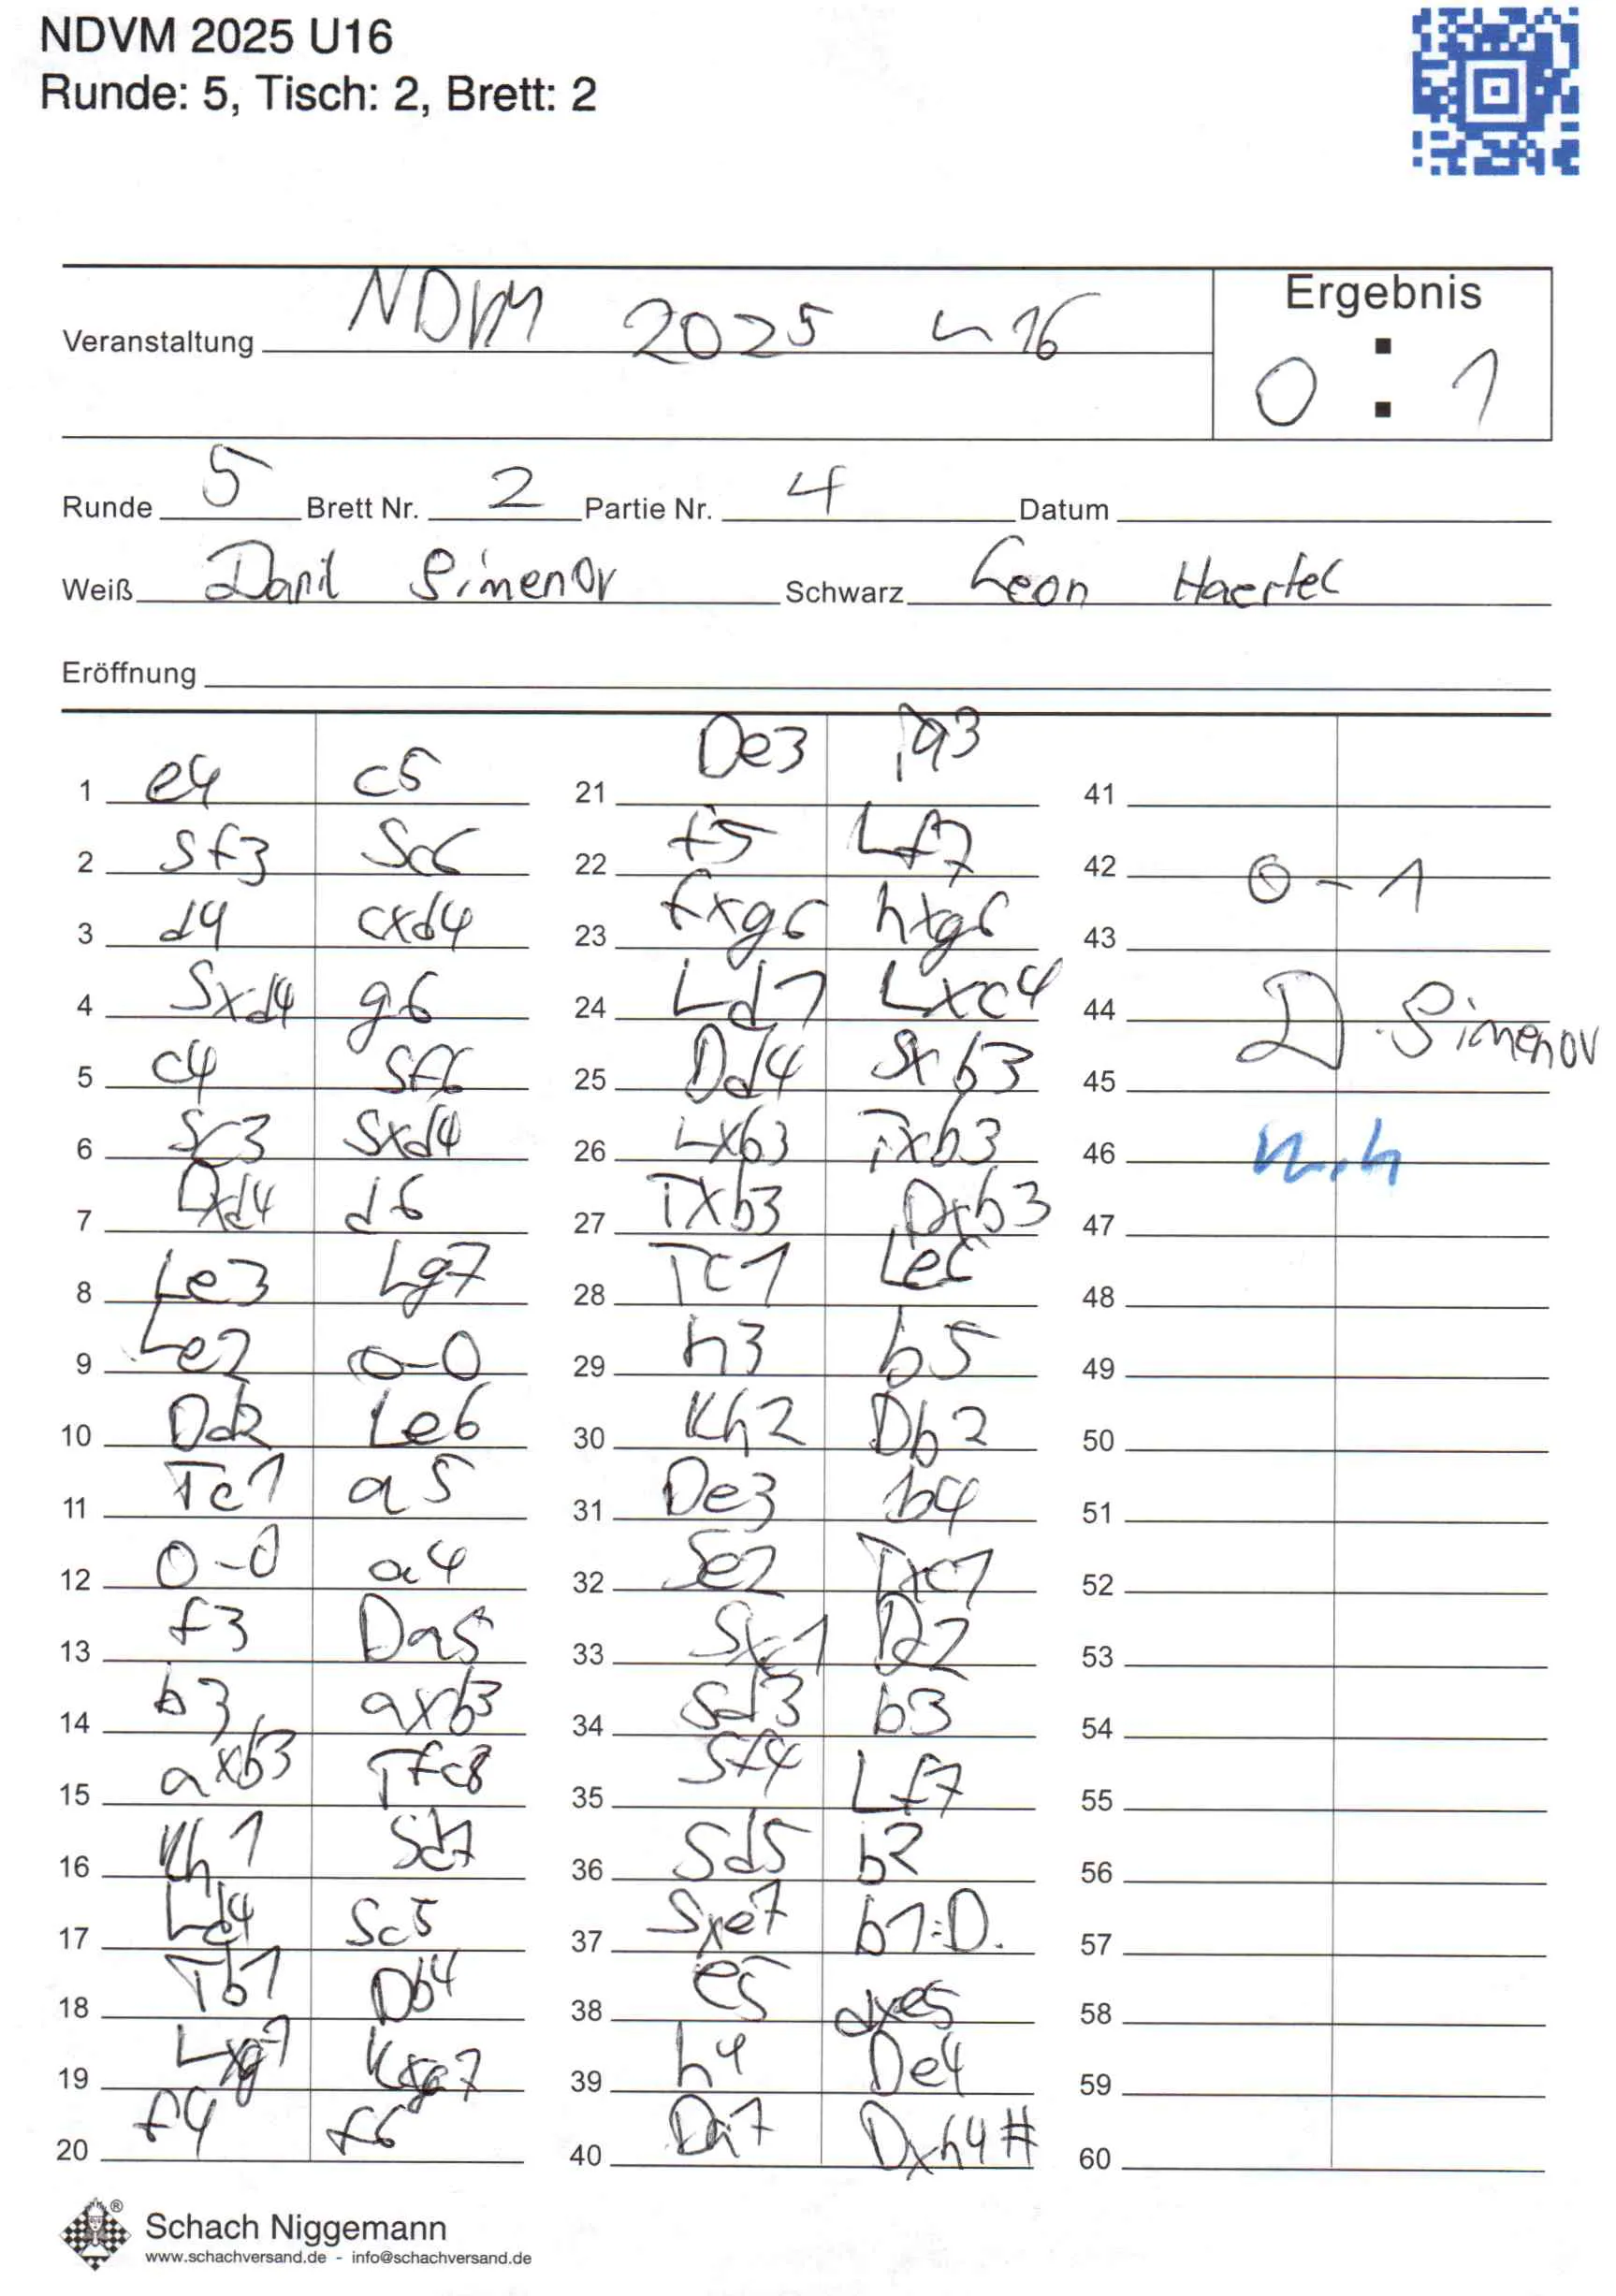 NDVM 2025 U16
Runde: 5, Tisch: 2, Brett: 2
Ergebnis
Veranstaltung NDVM 2025 u16
0 : 1
Runde 5 Brett Nr. 2 Partie Nr. 4 Datum
Weiß Danil Simenov Schwarz Leon Haertel
Eröffnung
1 e4 c5 21 De3 Ta3 41
2 Sf3 Sc6 22 f5 Lf7 42 0-1
3 d4 cxd4 23 fxg6 hxg6 43
4 Sxd4 g6 24 Ld1 Lxc4 44 D. Simenov
5 c4 Sf6 25 Dd4 Sxb3 45
6 Sc3 Sxd4 26 Lxb3 Txb3 46
7 Dxd4 d6 27 Txb3 Dxb3 47
8 Le3 Lg7 28 Tc1 Le6 48
9 Le2 0-0 29 h3 b5 49
10 Dd2 Le6 30 Kh2 Db2 50
11 Tc1 a5 31 De3 b4 51
12 0-0 a4 32 Se2 Txc1 52
13 f3 Da5 33 Sxc1 Dc2 53
14 b3 axb3 34 Sd3 b3 54
15 axb3 Tfc8 35 Sf4 Lf7 55
16 Kh1 Sd7 36 Sd5 b2 56
17 Ld4 Sc5 37 Sxe7 b1=D. 57
18 Tb1 Db4 38 e5 dxe5 58
19 Lxg7 Kxg7 39 h4 De4 59
20 f4 f6 40 Da7 Dxh4# 60
®
Schach Niggemann
www.schachversand.de - info@schachversand.de